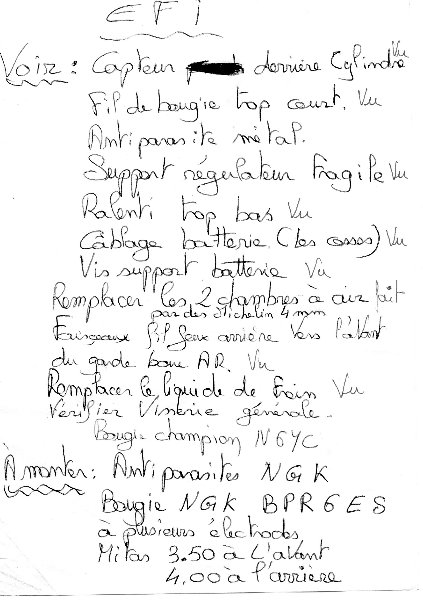 EFI
Voir : Capteur derrière Cylindre Vu
Fil de bougie trop court. Vu
Antiparasite métal.
Support régulateur Fragile Vu
Ralenti trop bas Vu
Câblage batterie (les cosses) Vu
Vis support batterie Vu
Remplacer les 2 chambres à air fait
par des Michelin 4 mm
Faisceaux fil feux arrière vers l'avant
du garde boue AR. Vu
Remplacer le liquide de Frein Vu
Vérifier Visserie générale.
Bougie champion N6YC
À monter : Antiparasites NGK
Bougie NGK BPR6ES
à plusieurs électrodes
Mitas 3.50 à L'avant
4,00 à l'arrière